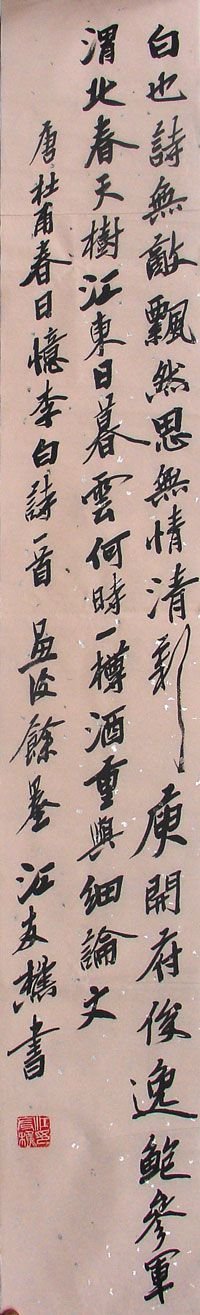 白也詩無敵飄然思無情清新庾開府俊逸鮑參軍
渭北春天樹江東日暮雲何時一樽酒重與細論文
唐杜甫春日憶李白詩一首畫後餘墨江友樵書